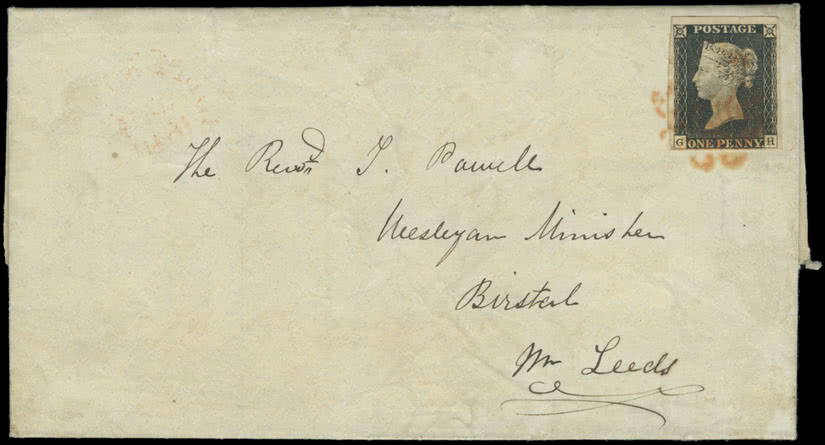 POSTAGE
G ONE PENNY H
The Revd. T. Powell
Wesleyan Minister
Birstal
Nr Leeds